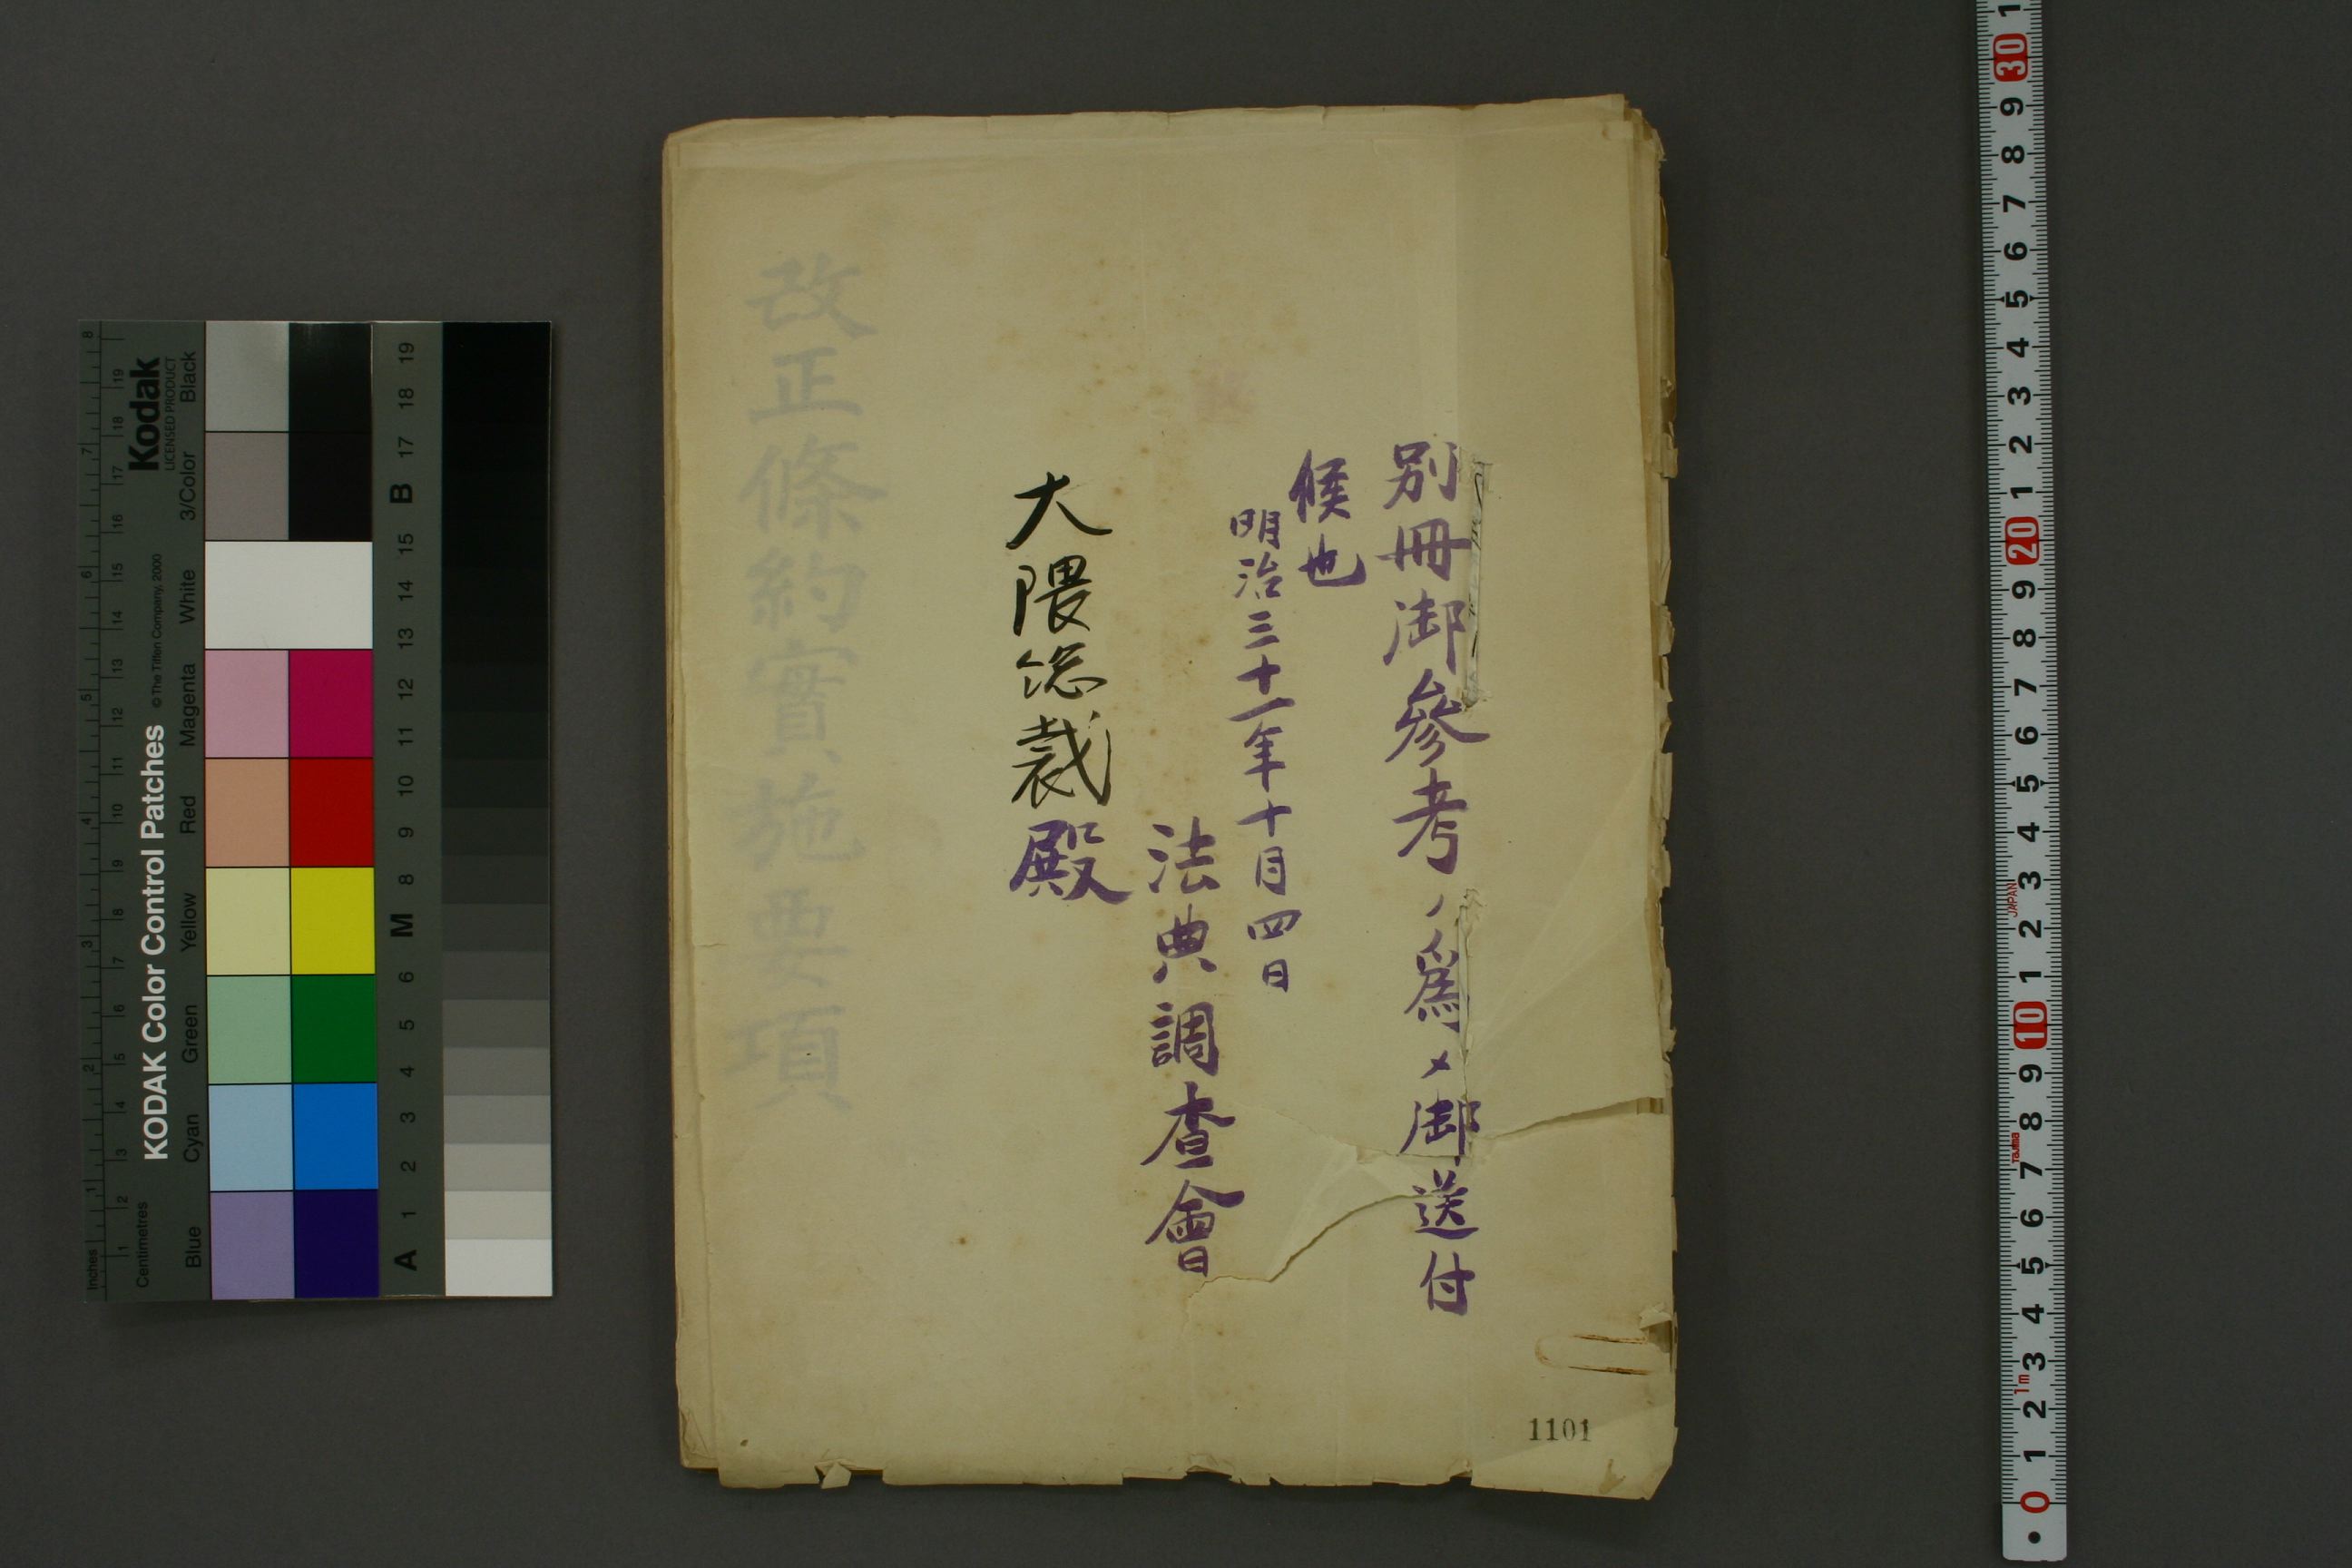 別冊御參考ノ爲メ御送付
候也
明治三十一年十月四日
法典調査會
大隈総裁殿
改正條約實施要項
1101
KODAK Color Control Patches
© The Tiffen Company, 2000
Kodak
LICENSED PRODUCT
Inches
Centimetres
Blue Cyan Green Yellow Red Magenta White 3/Color Black
A 1 2 3 4 5 6 M 8 9 10 11 12 13 14 15 B 17 18 19
JAPAN
Tajima
1m
0 1 2 3 4 5 6 7 8 9 10 1 2 3 4 5 6 7 8 9 20 1 2 3 4 5 6 7 8 9 30 1